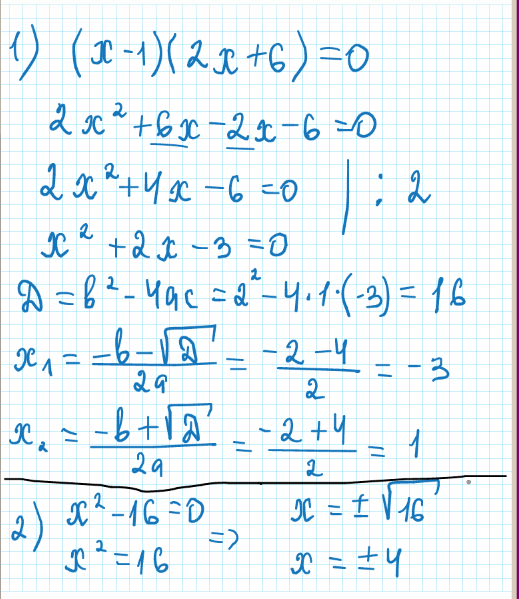 1) (x-1)(2x+6)=0
2x²+6x-2x-6=0
2x²+4x-6=0 | : 2
x²+2x-3=0
D=b²-4ac=2²-4·1·(-3)=16
x₁ = (-b-√D)/2a = (-2-4)/2 = -3
x₂ = (-b+√D)/2a = (-2+4)/2 = 1
2) x²-16=0 => x = ±√16
x²=16 x = ±4